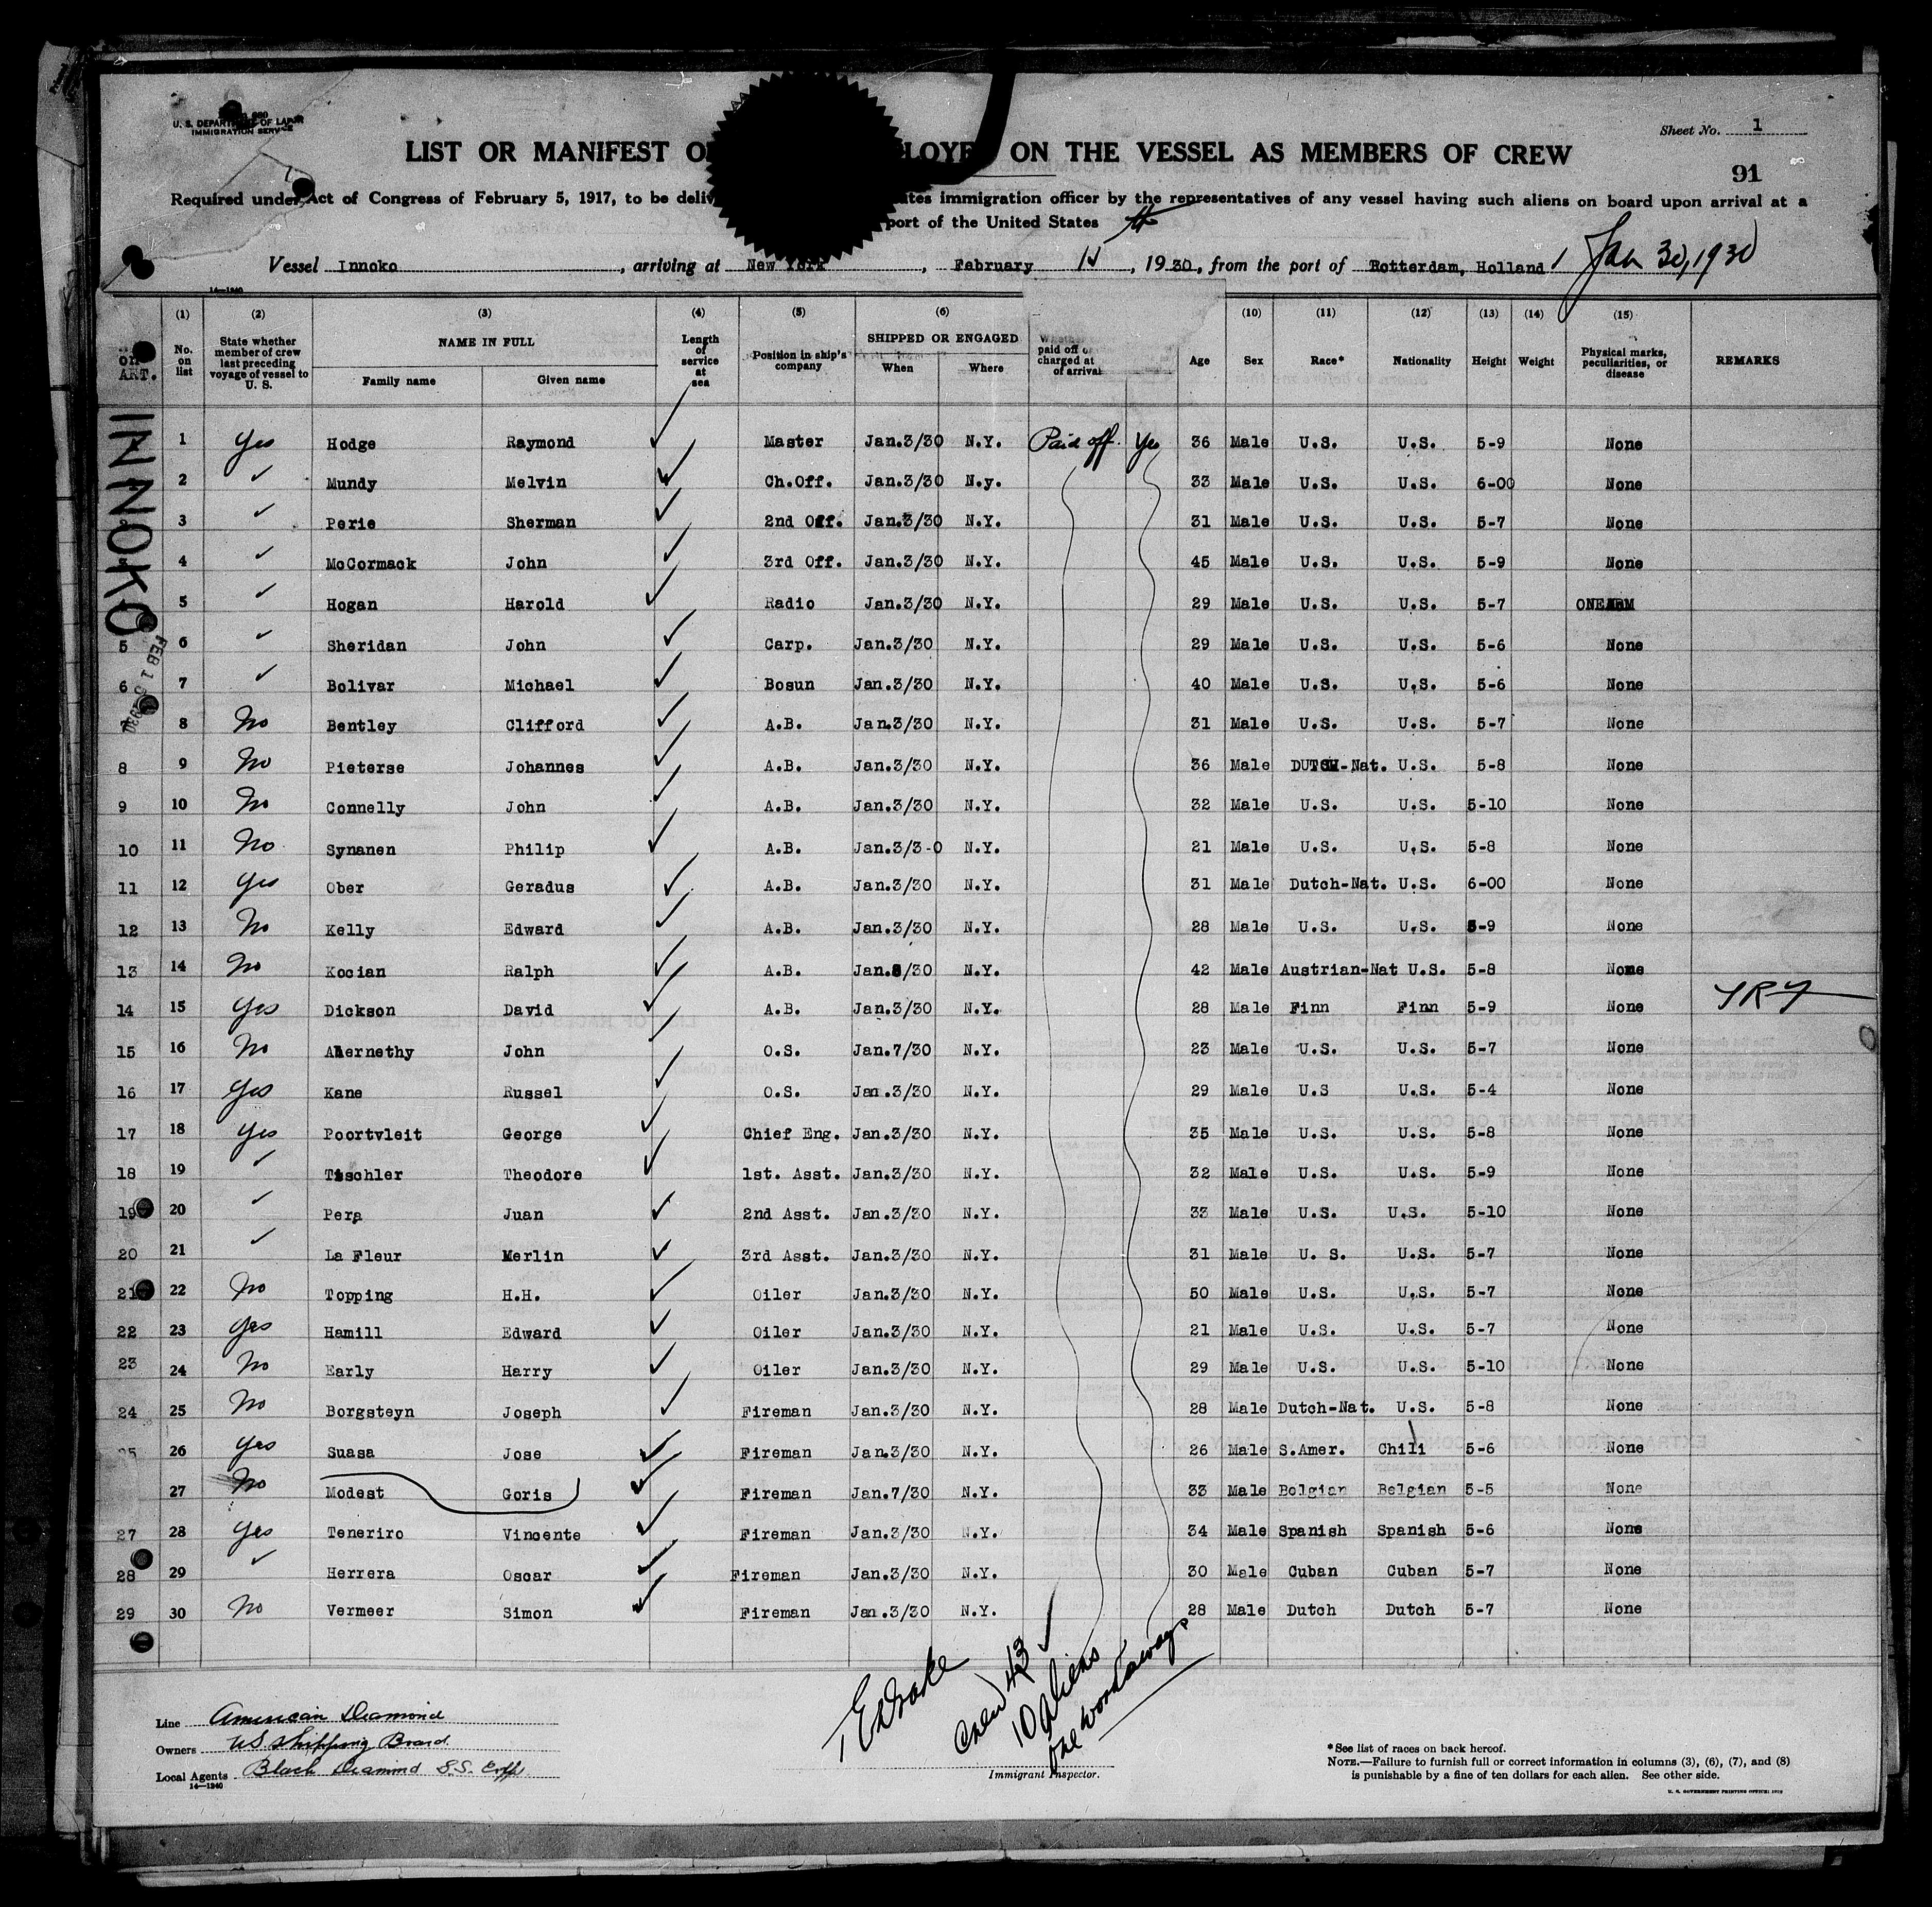 U. S. DEPARTMENT OF LABOR
IMMIGRATION SERVICE
Sheet No. 1
LIST OR MANIFEST OF LOYED ON THE VESSEL AS MEMBERS OF CREW
91
Required under Act of Congress of February 5, 1917, to be deliv ates immigration officer by the representatives of any vessel having such aliens on board upon arrival at a
port of the United States
Vessel Innoko, arriving at New York, Fabruary 14, 1930, from the port of Rotterdam, Holland Jan 30, 1930
14—1940
(1) (2) (3) (4) (5) (6) (10) (11) (12) (13) (14) (15)
No. on list State whether member of crew last preceding voyage of vessel to U. S. NAME IN FULL Family name Given name Length of service at sea Position in ship's company SHIPPED OR ENGAGED When Where Whether paid off or charged at of arrival Age Sex Race* Nationality Height Weight Physical marks, peculiarities, or disease REMARKS
INNOKO
1 Yes Hodge Raymond Master Jan.3/30 N.Y. Paid off Yes 36 Male U.S. U.S. 5-9 None
2 ✓ Mundy Melvin Ch.Off. Jan.3/30 N.y. 33 Male U.S. U.S. 6-00 None
3 ✓ Perie Sherman 2nd Off. Jan.3/30 N.Y. 31 Male U.S. U.S. 5-7 None
4 ✓ McCormack John 3rd Off. Jan.3/30 N.Y. 45 Male U.S. U.S. 5-9 None
5 ✓ Hogan Harold Radio Jan.3/30 N.Y. 29 Male U.S. U.S. 5-7 ONEARM
5 6 ✓ Sheridan John Carp. Jan.3/30 N.Y. 29 Male U.S. U.S. 5-6 None
6 7 ✓ Bolivar Michael Bosun Jan.3/30 N.Y. 40 Male U.S. U.S. 5-6 None
7 8 No Bentley Clifford A.B. Jan.3/30 N.Y. 31 Male U.S. U.S. 5-7 None
8 9 No Pieterse Johannes A.B. Jan.3/30 N.Y. 36 Male DUTCH-Nat. U.S. 5-8 None
9 10 No Connelly John A.B. Jan.3/30 N.Y. 32 Male U.S. U.S. 5-10 None
10 11 No Synanen Philip A.B. Jan.3/3-0 N.Y. 21 Male U.S. U.S. 5-8 None
11 12 Yes Ober Geradus A.B. Jan.3/30 N.Y. 31 Male Dutch-Nat. U.S. 6-00 None
12 13 No Kelly Edward A.B. Jan.3/30 N.Y. 28 Male U.S. U.S. 5-9 None
13 14 No Kocian Ralph A.B. Jan.3/30 N.Y. 42 Male Austrian-Nat U.S. 5-8 None
14 15 Yes Dickson David A.B. Jan.3/30 N.Y. 28 Male Finn Finn 5-9 None
15 16 No Abernethy John O.S. Jan.7/30 N.Y. 23 Male U.S. U.S. 5-7 None
16 17 Yes Kane Russel O.S. Jan.3/30 N.Y. 29 Male U.S U.S. 5-4 None
17 18 Yes Poortvleit George Chief Eng. Jan.3/30 N.Y. 35 Male U.S. U.S. 5-8 None
18 19 ✓ Tischler Theodore 1st. Asst. Jan.3/30 N.Y. 32 Male U.S. U.S. 5-9 None
19 20 ✓ Pera Juan 2nd Asst. Jan.3/30 N.Y. 33 Male U.S. U.S. 5-10 None
20 21 ✓ La Fleur Merlin 3rd Asst. Jan.3/30 N.Y. 31 Male U. S. U.S. 5-7 None
21 22 No Topping H.H. Oiler Jan.3/30 N.Y. 50 Male U.S. U.S. 5-7 None
22 23 Yes Hamill Edward Oiler Jan.3/30 N.Y. 21 Male U.S. U.S. 5-7 None
23 24 No Early Harry Oiler Jan.3/30 N.Y. 29 Male U.S. U.S. 5-10 None
24 25 No Borgsteyn Joseph Fireman Jan.3/30 N.Y. 28 Male Dutch-Nat. U.S. 5-8 None
25 26 Yes Suasa Jose Fireman Jan.3/30 N.Y. 26 Male S.Amer. Chili 5-6 None
27 No Modest Goris Fireman Jan.7/30 N.Y. 33 Male Belgian Belgian 5-5 None
27 28 Yes Teneriro Vincente Fireman Jan.3/30 N.Y. 34 Male Spanish Spanish 5-6 None
28 29 ✓ Herrera Oscar Fireman Jan.3/30 N.Y. 30 Male Cuban Cuban 5-7 None
29 30 No Vermeer Simon Fireman Jan.3/30 N.Y. 28 Male Dutch Dutch 5-7 None
Crew 43
10 Aliens
one workaways
Line American Diamond
Owners US Shipping Board.
Local Agents Black Diamond S.S. Corp.
14—1940
Immigrant Inspector.
*See list of races on back hereof.
NOTE.—Failure to furnish full or correct information in columns (3), (6), (7), and (8)
is punishable by a fine of ten dollars for each alien. See other side.